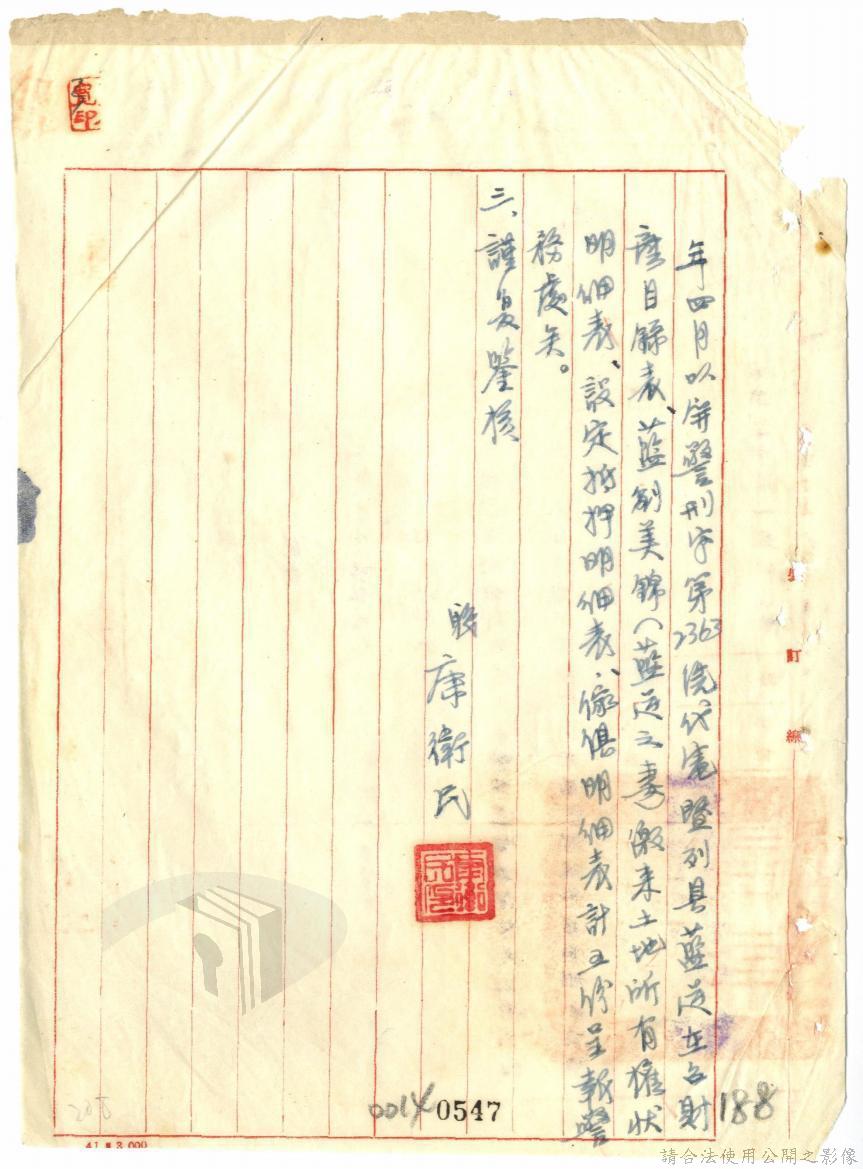 年四月以屏警刑字第2363號代電暨列具藍逆在台財
產目錄表、藍劉美錦(藍逆之妻繳來土地所有權狀
明細表、設定抵押明細表、傢俱明細表計五份呈報警
務處矣。
三、謹复鑒核
職 康衛民
裝訂線
188
0014
0547
208
41.8.3,000
請合法使用公開之影像